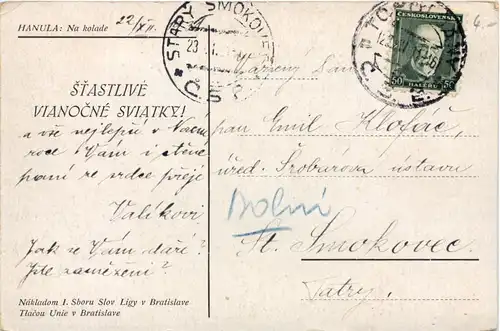 HANULA: Na kolade
22/XII.
ŠŤASTLIVÉ
VIANOČNÉ SVIATKY!
a vše nejlepší v Novém
roce Vám i ctěné
paní ze srdce přeje
Valíkovi
Jak se Vám daří?
Jste zaměžení?
Nákladom I. Sboru Slov Ligy v Bratislave
Tlačou Unie v Bratislave
STARÝ SMOKOVEC
23
Č.S.R.
ČESKOSLOVENSKO
50 HALÉŘŮ 50
4-
Vážený
pan Emil Klofáč,
úřed. Šrobárova ústavu
Dolní
St. Smokovec
Tatry.